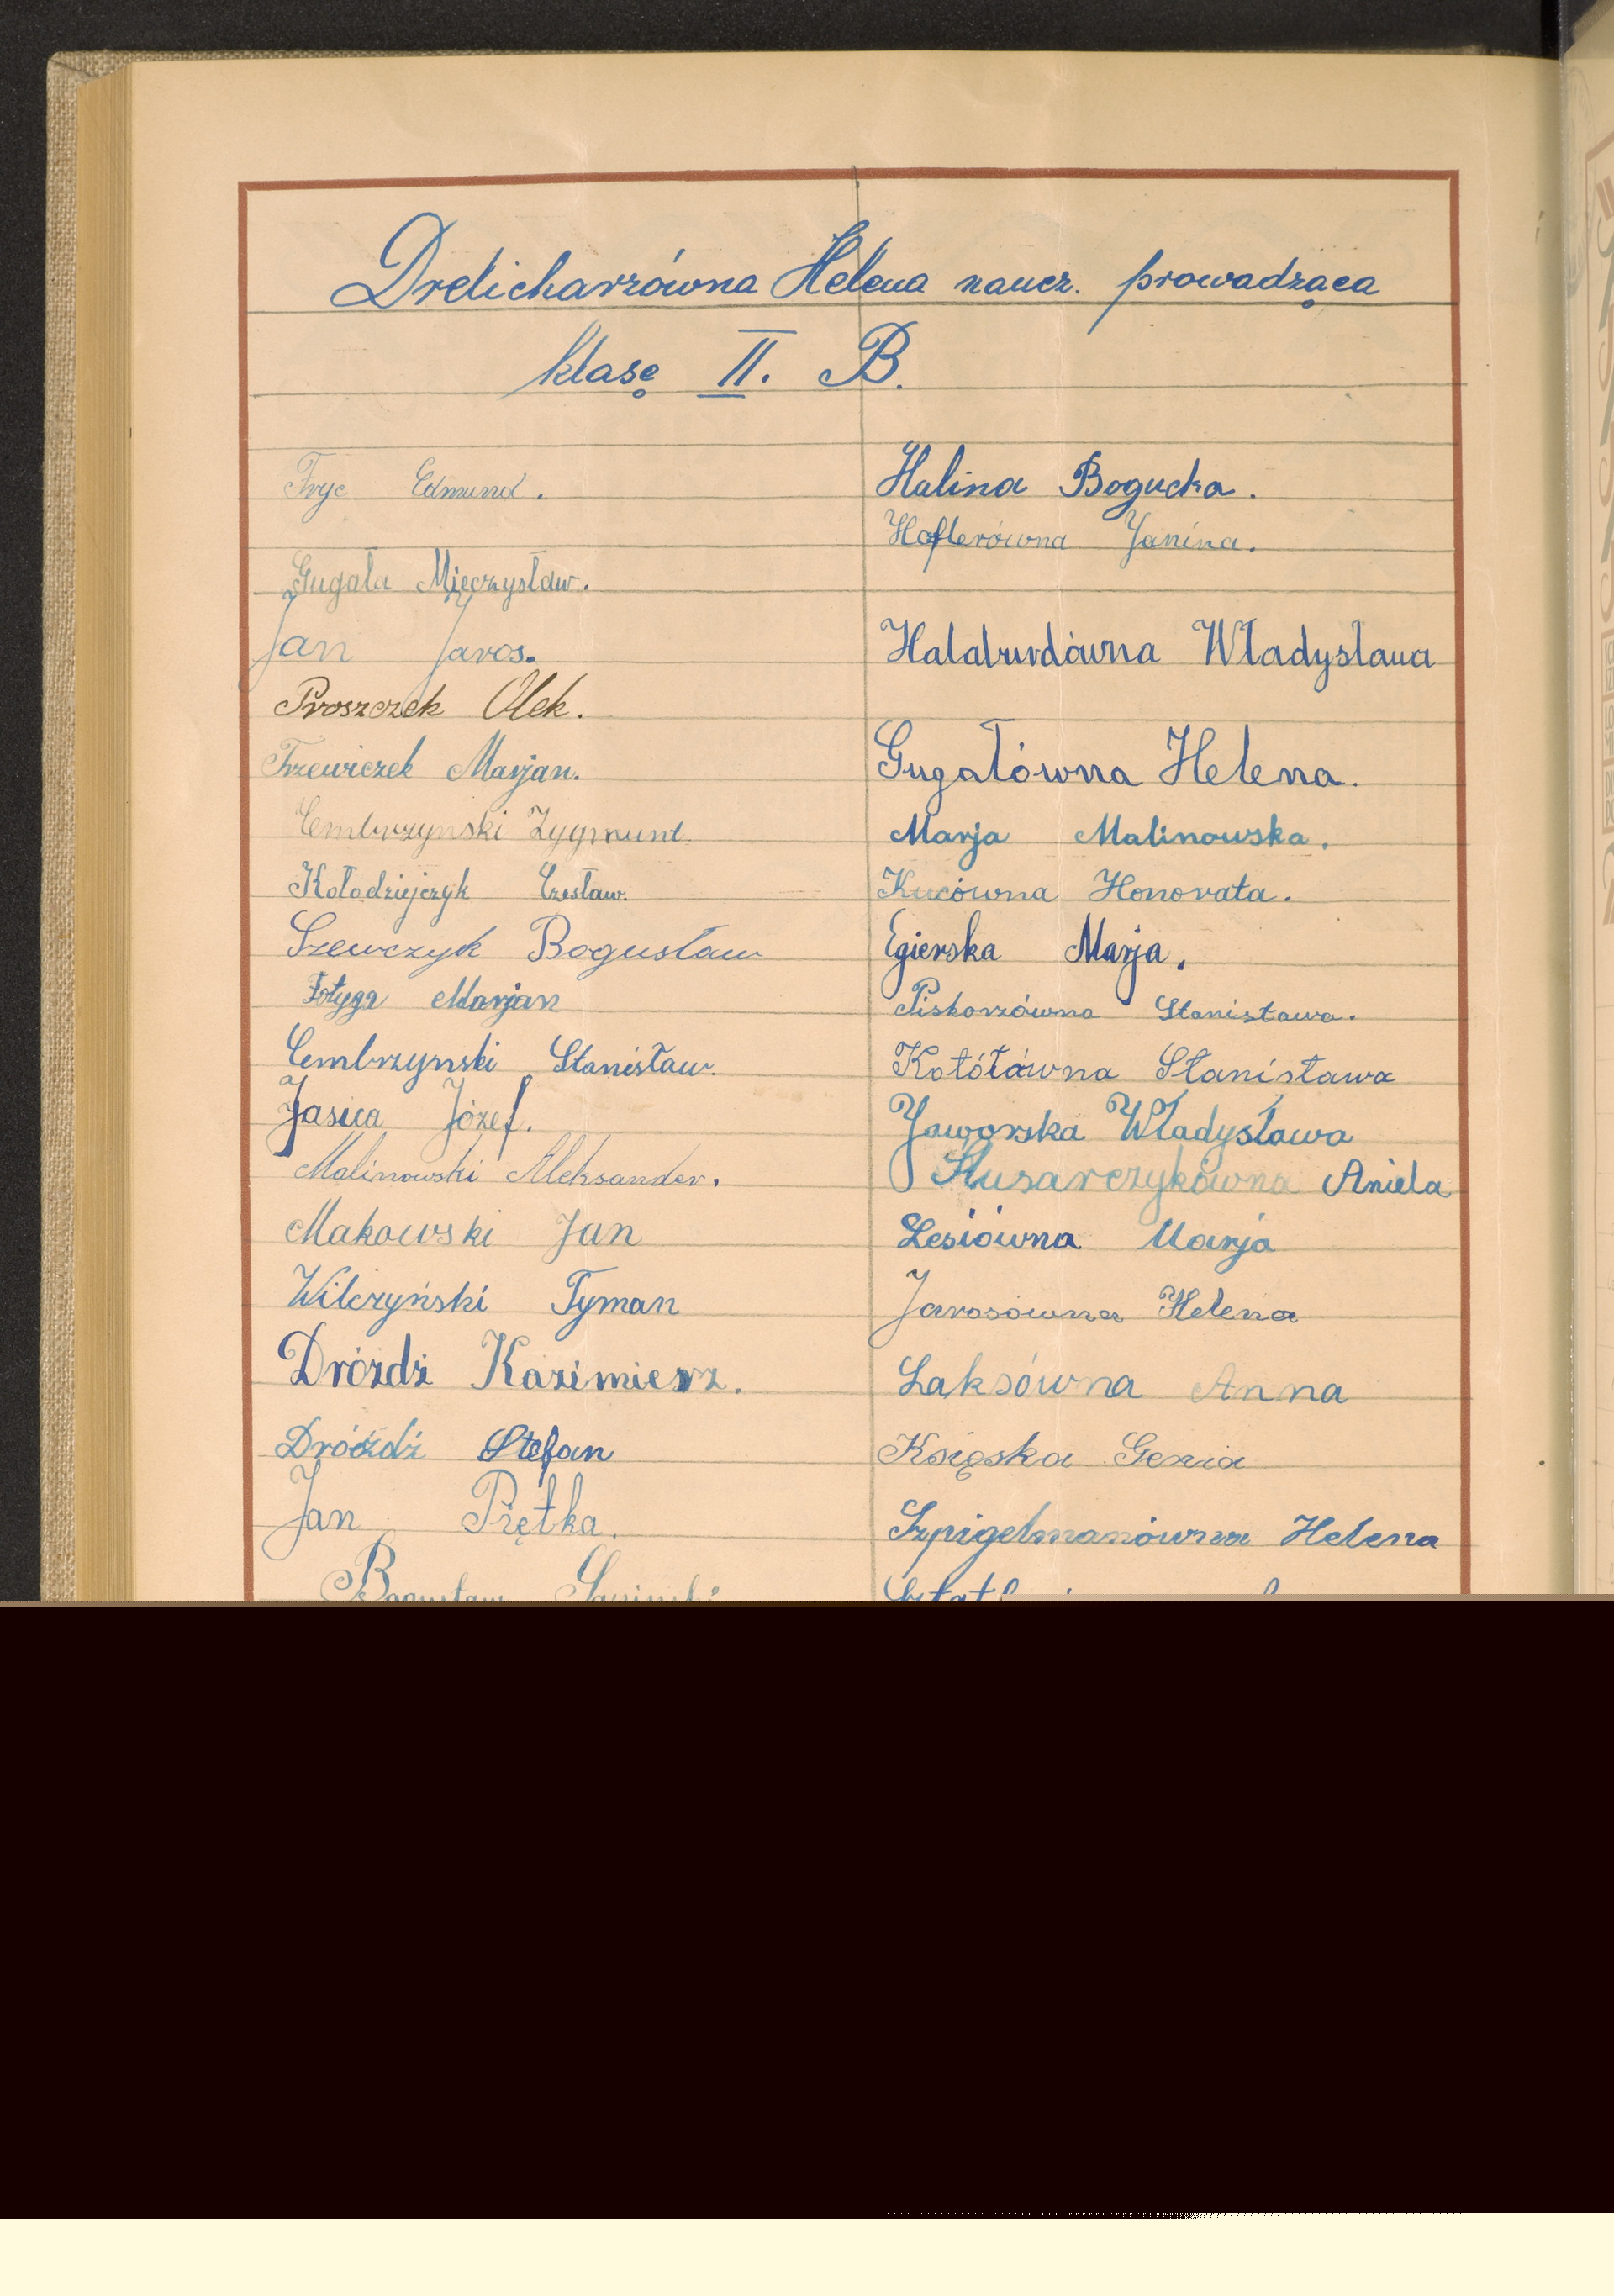 Drelicharzówna Helena naucz. prowadząca
klasę II. B.
Fryc Edmund.
Gugała Mieczysław.
Jan Jaros.
Proszczek Olek.
Trzewiczek Marjan.
Cembrzynski Zygmunt
Kołodziejczyk Czesław.
Szewczyk Bogusław
Fotyga Marjan
Cembrzynski Stanisław.
Jasica Józef.
Malinowski Aleksander.
Makowski Jan
Wilczyński Tyman
Dróżdż Kazimierz.
Dróżdż Stefan
Jan Prętka.
Bogusław
Halina Bogucka.
Hoflerówna Janina.
Hałaburdówna Władysława
Gugałówna Helena.
Marja Malinowska.
Kucówna Honorata.
Egierska Marja.
Piskorzówna Stanisława.
Kotółówna Stanisława
Jaworska Władysława
Ślusarczykówna Aniela
Lesiówna Marja
Jarosówna Helena
Laksówna Anna
Księska Genia
Szpigelmanówna Helena